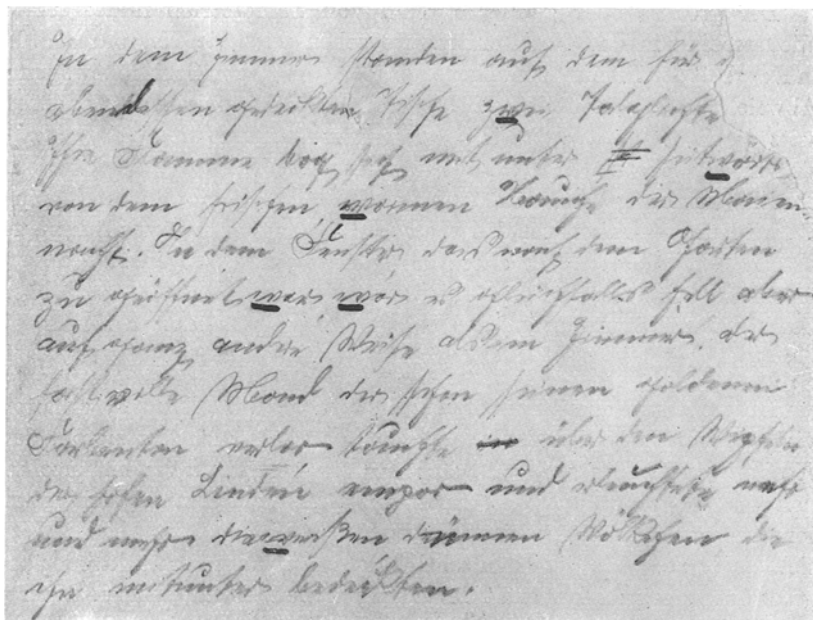 In dem Zimmer standen auf dem für
abendessen gedeckten Tische zwei Talglichte
Ihre Flamme bog sich mit unter seitwärts
von dem frischen, warmen Hauche der Maien-
nacht. In dem Fenster das nach dem Garten
zu geöffnet war, war es gleichfalls hell aber
auf ganz andre Weise als im Zimmer. der
fast volle Mond der schon seinen goldenen
Farbenton verlor tauchte über den Wipfeln
der hohen Linden empor und erleuchtete mehr
und mehr die weißen dünnen Wölkchen die
ihn mitunter bedeckten.